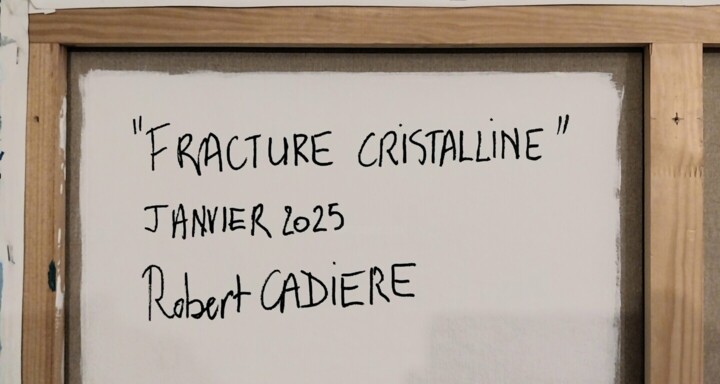 "FRACTURE CRISTALLINE"
JANVIER 2025
Robert CADIERE